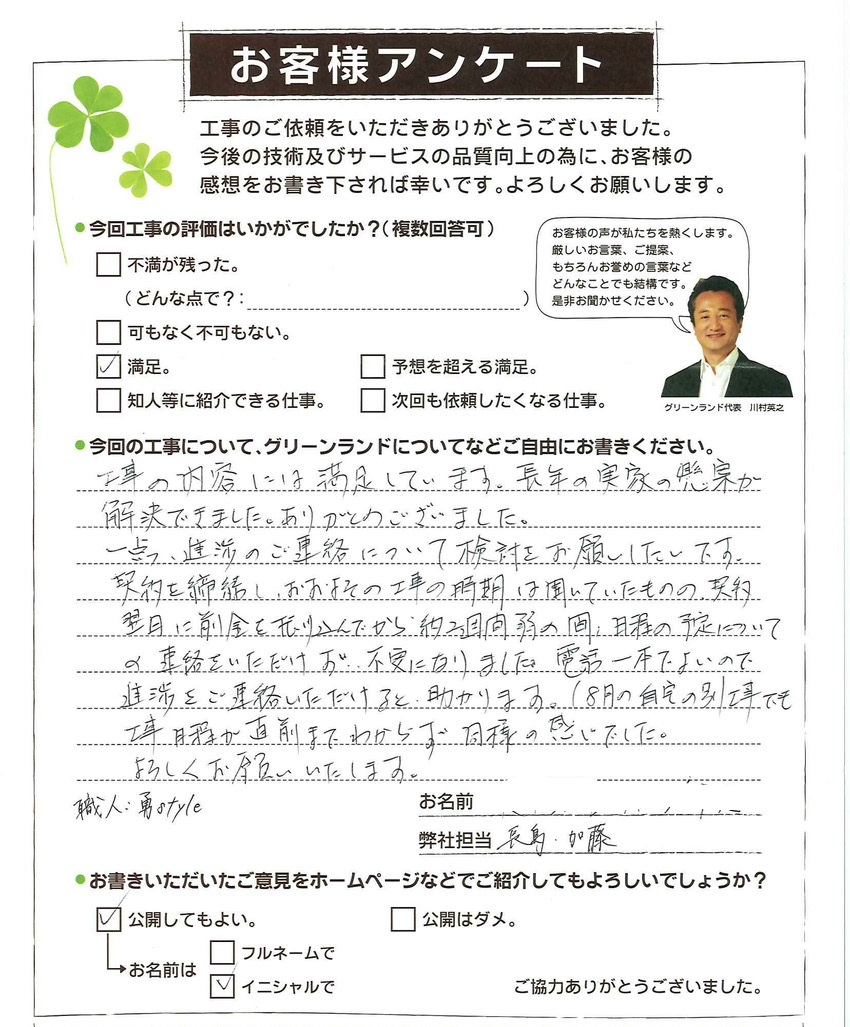 お客様アンケート
工事のご依頼をいただきありがとうございました。
今後の技術及びサービスの品質向上の為に、お客様の
感想をお書き下されば幸いです。よろしくお願いします。
●今回工事の評価はいかがでしたか?(複数回答可)
不満が残った。
(どんな点で?: )
可もなく不可もない。
満足。
予想を超える満足。
知人等に紹介できる仕事。
次回も依頼したくなる仕事。
お客様の声が私たちを熱くします。
厳しいお言葉、ご提案、
もちろんお誉めの言葉など
どんなことでも結構です。
是非お聞かせください。
グリーンランド代表 川村英之
●今回の工事について、グリーンランドについてなどご自由にお書きください。
工事の内容には満足しています。長年の実家の懸案が
解決できました。ありがとうございました。
一点、進渉のご連絡について検討をお願いしたいです。
契約を締結し、おおよその工事の時期は聞いていたものの、契約
翌日に前金を振り込んでから約2週間弱の間、日程の予定について
の連絡をいただけず、不安になりました。電話一本でよいので
進渉をご連絡いただけると助かります。(8月の自宅の別工事でも
工事日程が直前までわからず同様の感じでした。
よろしくお願いいたします。
職人:勇style
お名前
弊社担当 長島・加藤
●お書きいただいたご意見をホームページなどでご紹介してもよろしいでしょうか?
公開してもよい。
公開はダメ。
お名前は
フルネームで
イニシャルで
ご協力ありがとうございました。